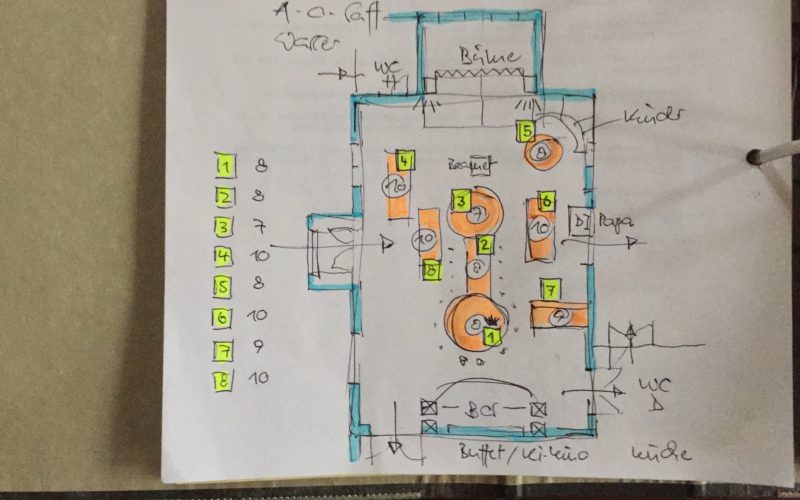 A-O-Saft
Wasser
WC
H
Bühne
Kinder
5
8
4
10
Beamer
1 8
2 8
3 7
4 10
5 8
6 10
7 9
8 10
3
7
6
10
DJ
Papa
10
2
8
8
7
9
8
1
WC
D
Bar
Buffet/Ki-Kino
Küche